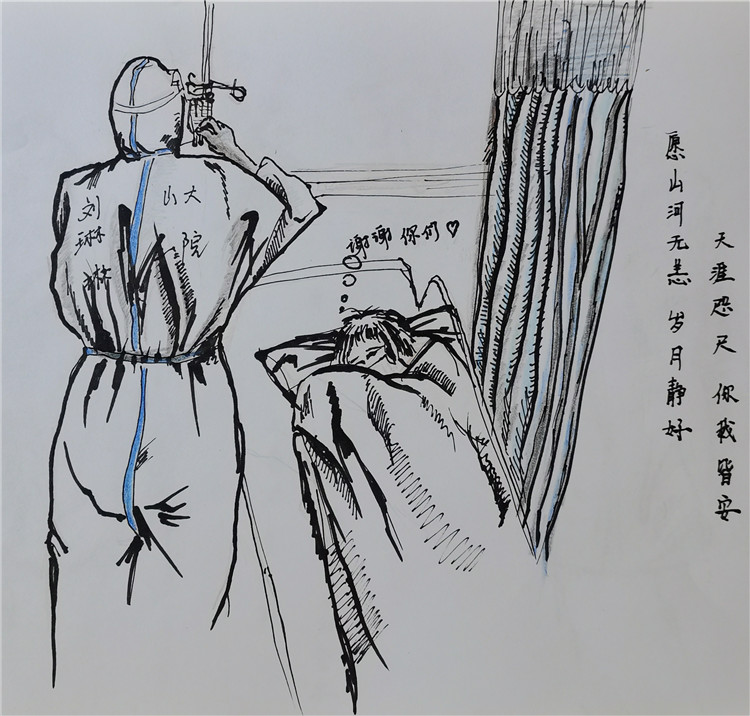 刘琳琳
山大
院
谢谢你们♡
愿山河无恙 岁月静好
天涯咫尺 你我皆安